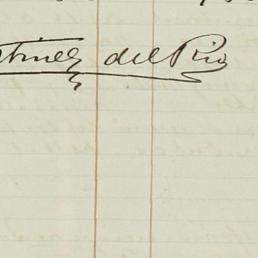 tinez del Rio